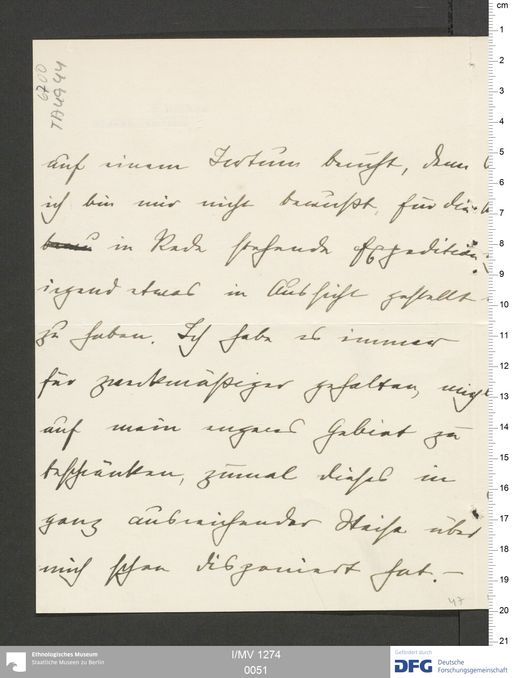 6700
TA4944
auf einem Irrtum beruht, denn
ich bin mir nicht bewußt, für die
in Rede stehende Expedition
irgend etwas in Aussicht gestellt
zu haben. Ich habe es immer
für zweckmäßiger gehalten, mich
auf mein engeres Gebiet zu
beschränken, zumal dieses in
ganz ausreichender Weise über
mich schon disponiert hat. –
47
cm
1
2
3
4
5
6
7
8
9
10
11
12
13
14
15
16
17
18
19
20
21
Ethnologisches Museum
Staatliche Museen zu Berlin
I/MV 1274
0051
Gefördert durch
DFG Deutsche
Forschungsgemeinschaft